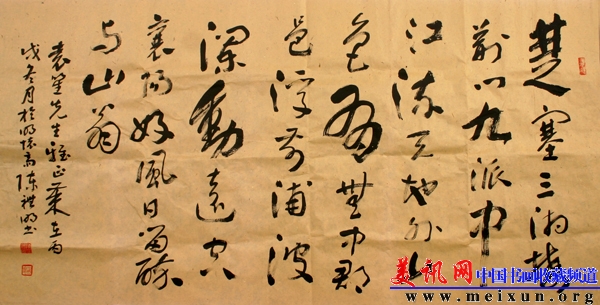 楚塞三湘接
荆门九派通
江流天地外山
色有無中郡
邑浮前浦波
澜動遠空
襄陽好風日留醉
与山翁
先生雅正 在丙
戌冬月於 陈禮明书
美讯网 中国书画收藏频道
www.meixun.org